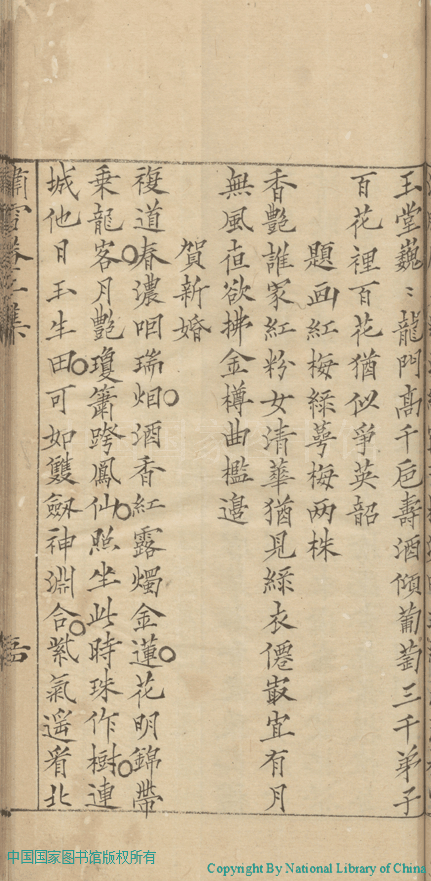 玉堂巍〻龍門高千巵壽酒傾葡萄三千弟子
百花裡百花猶似爭英韶
題画紅梅緑萼梅两株
香艷誰家紅粉女清華猶見緑衣僊㝡宜有月
無風亱欲拂金樽曲檻邉
賀新婚
複道春濃瑞烟酒香紅露燭金蓮花明錦帶
乗龍客月艷瓊簫跨鳳仙照坐此時珠作樹連
城他日玉生田可如雙劔神淵合紫氣遥看北
中国国家图书馆版权所有
Copyright By National Library of China